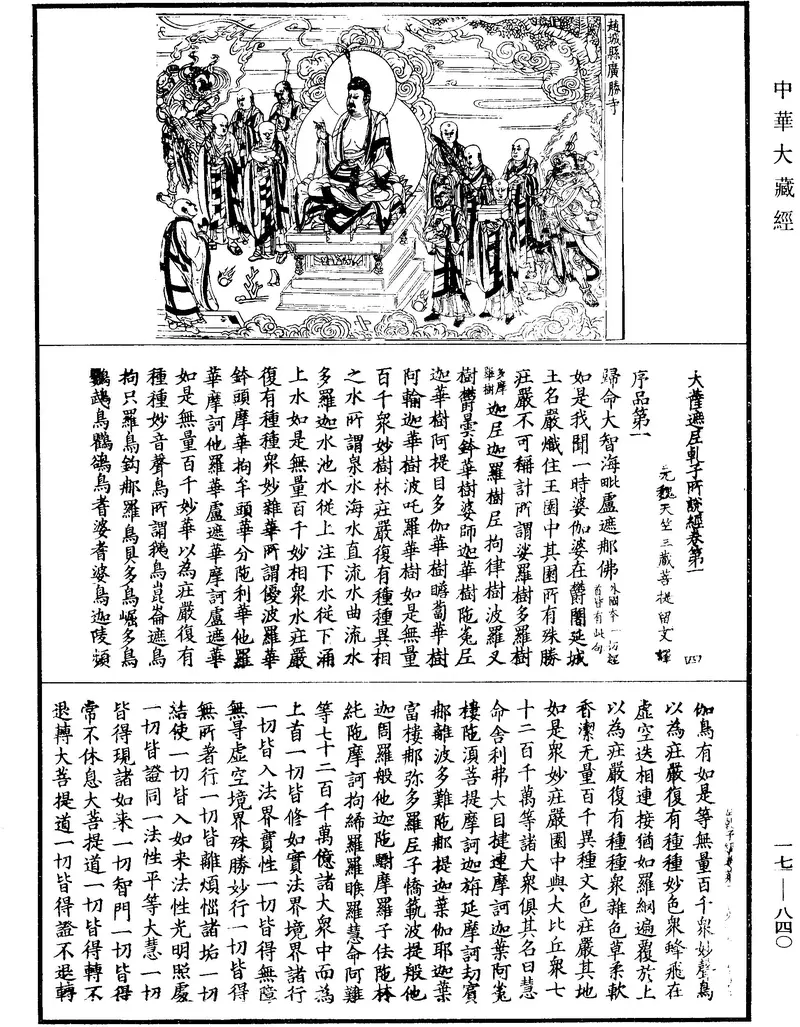 中華大藏經
趙城縣廣勝寺
大薩遮尼乾子所說經卷第一
元魏天竺三藏菩提留支譯
序品第一
歸命大智海毗盧遮那佛
如是我聞一時婆伽婆在鬱闍延城
王名嚴熾住王園中其園所有殊勝
莊嚴不可稱計所謂娑羅樹多羅樹
多摩羅樹迦尼迦羅樹尼拘律樹波羅叉
樹鬱曇鉢華樹婆師迦華樹陁㝹尼
迦華樹阿提目多伽華樹瞻蔔華樹
阿輸迦華樹波吒羅華樹如是無量
百千衆妙樹林莊嚴復有種種異相
之水所謂泉水海水直流水曲流水
多羅迦水池水從上注下水從下涌
上水如是無量百千妙相衆水莊嚴
復有種種衆妙雜華所謂優波羅華
鉢頭摩華拘牟頭華分陁利華他羅
華摩訶他羅華盧遮華摩訶盧遮華
如是無量百千妙華以為莊嚴復有
種種妙音聲鳥所謂鵝鳥崑崙遮鳥
拘只羅鳥鈎那羅鳥貝多鳥崛多鳥
鸚鵡鳥鸜鵒鳥耆婆耆婆鳥迦陵頻
伽鳥有如是等無量百千衆妙聲鳥
以為莊嚴復有種種妙色衆蜂飛在
虛空迭相連接猶如羅網遍覆於上
以為莊嚴復有種種衆雜色草柔軟
香潔无量百千異種文色莊嚴其地
如是衆妙莊嚴園中與大比丘衆七
十二百千萬等諸大衆俱其名曰慧
命舍利弗大目揵連摩訶迦葉阿㝹
樓陁須菩提摩訶迦旃延摩訶劫賓
那離波多難陁那提迦葉伽耶迦葉
富樓那弥多羅尼子憍範波提般他
迦周羅般他迦陁驃摩羅子佉陁林
純陁摩訶拘絺羅羅睺羅慧命阿難
等七十二百千萬億諸大衆中而為
上首一切皆修如實法界境界諸行
一切皆入法界實性一切皆得無障
無㝵虛空境界殊勝妙行一切皆得
無所著行一切皆離煩惱諸垢一切
結使一切皆入如来法性光明照處
一切皆證同一法性平等大慧一切
皆得現諸如来一切智門一切皆得
常不休息大菩提道一切皆得轉不
退轉大菩提道一切皆得證不退轉
一七—八四〇